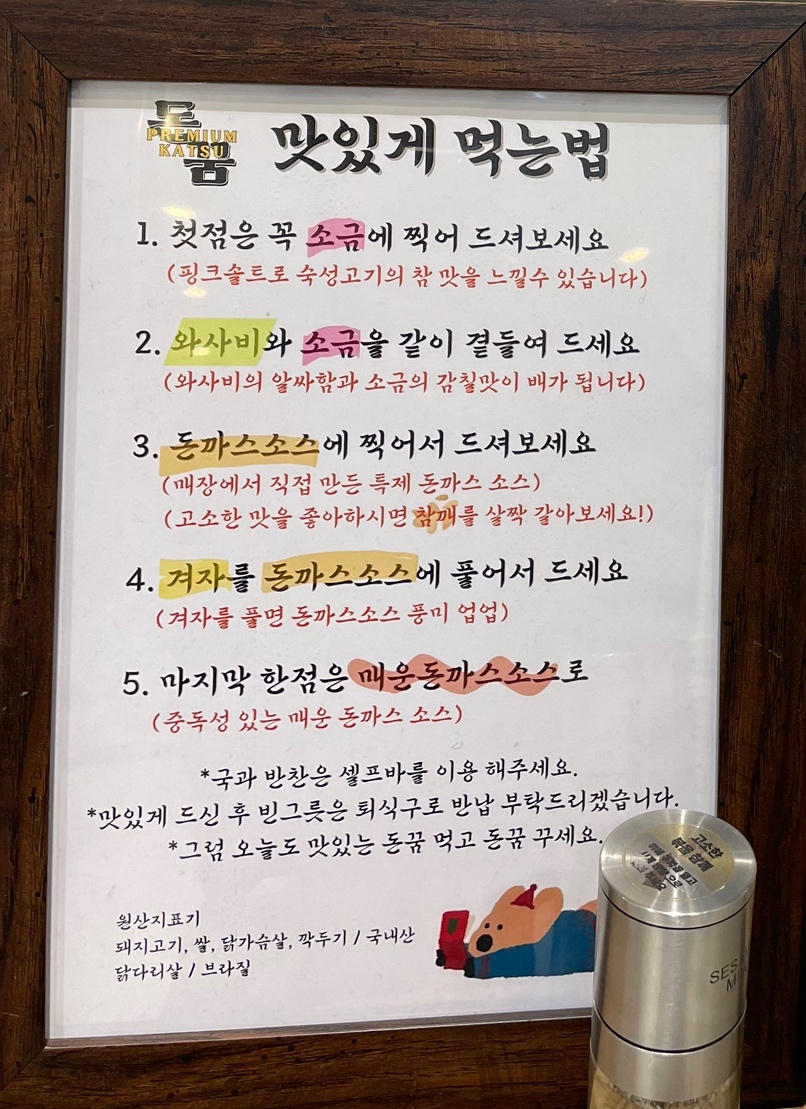 돈꿈
PREMIUM
KATSU
맛있게 먹는법
1. 첫점은 꼭 소금에 찍어 드셔보세요
(핑크솔트로 숙성고기의 참 맛을 느낄수 있습니다)
2. 와사비와 소금을 같이 곁들여 드세요
(와사비의 알싸함과 소금의 감칠맛이 배가 됩니다)
3. 돈까스소스에 찍어서 드셔보세요
(매장에서 직접 만든 특제 돈까스 소스)
(고소한 맛을 좋아하시면 참깨를 살짝 갈아보세요!)
4. 겨자를 돈까스소스에 풀어서 드세요
(겨자를 풀면 돈까스소스 풍미 업업)
5. 마지막 한점은 매운돈까스소스로
(중독성 있는 매운 돈까스 소스)
*국과 반찬은 셀프바를 이용 해주세요.
*맛있게 드신 후 빈그릇은 퇴식구로 반납 부탁드리겠습니다.
*그럼 오늘도 맛있는 돈꿈 먹고 돈꿈 꾸세요.
원산지표기
돼지고기, 쌀, 닭가슴살, 깍두기 / 국내산
닭다리살 / 브라질
고소한
볶음 참깨
SES
M